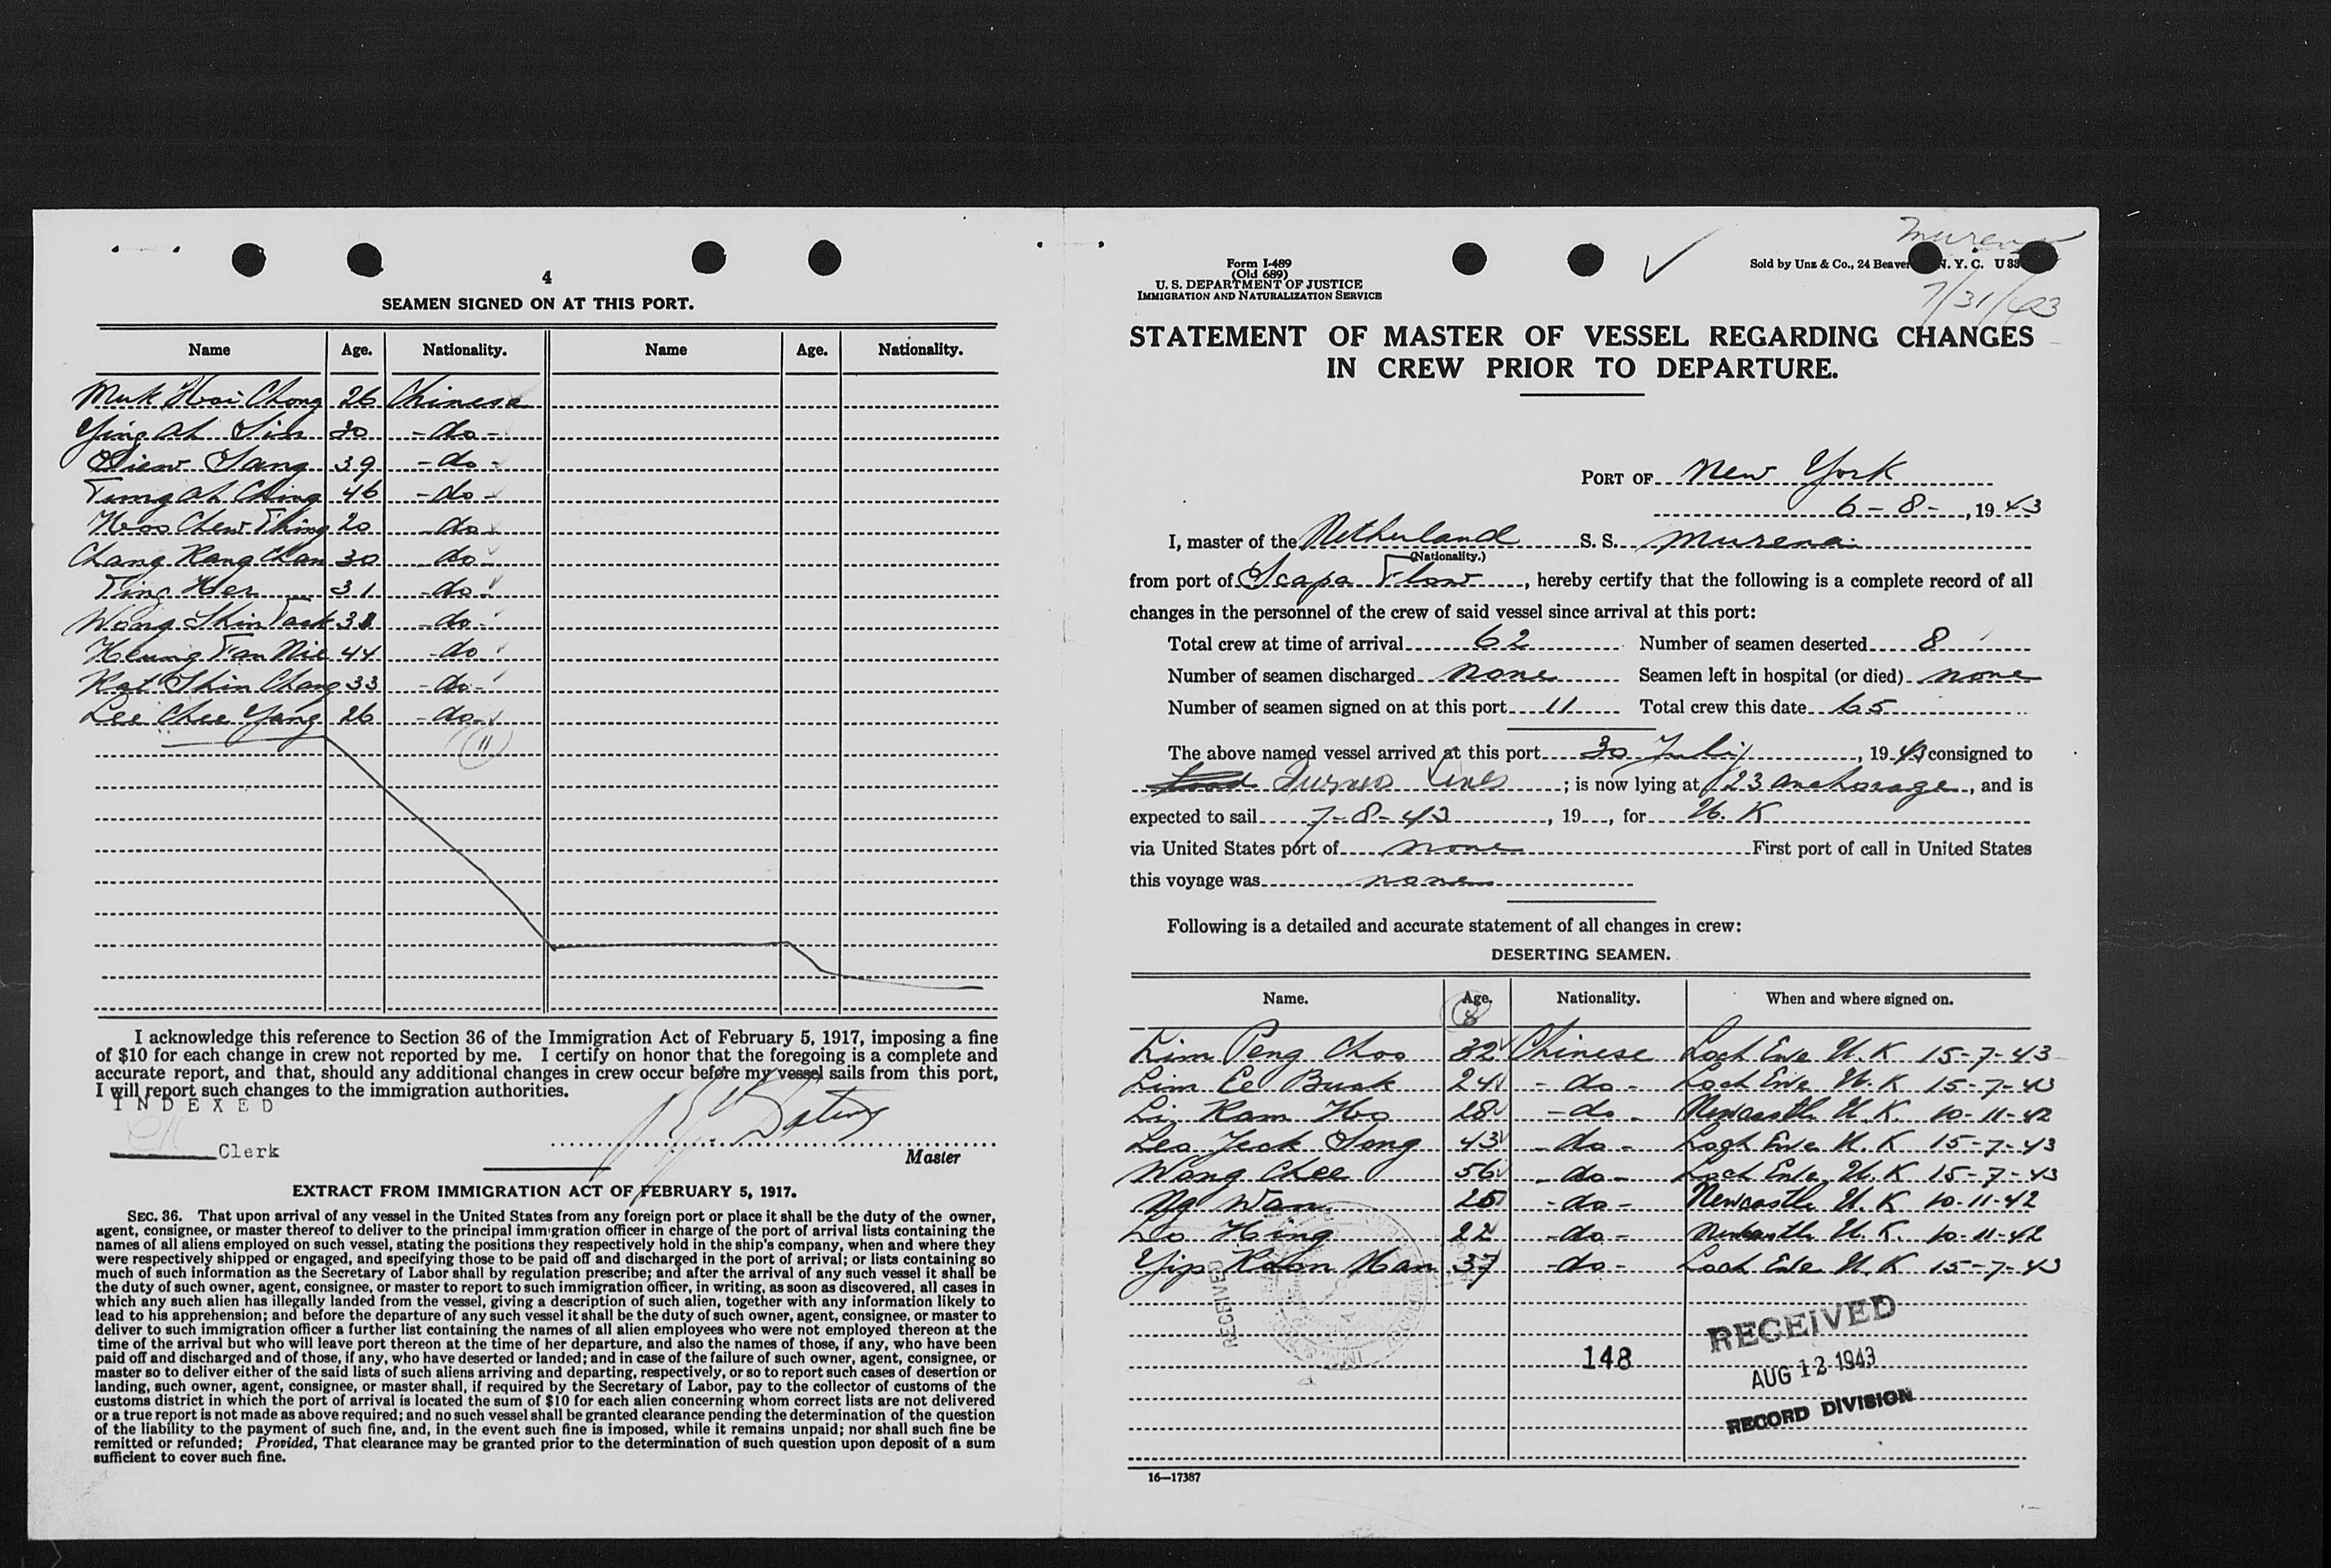 4
SEAMEN SIGNED ON AT THIS PORT.
Name Age. Nationality. Name Age. Nationality.
Muk Hoi Chong 26 Chinese
Ying Ah Sin 30 - do -
Siew Sang 39 - do -
Tung Ah Ching 46 - do -
Woo Chew Thing 20 - do -
Chang Kang Chan 30 - do -
Ting Her 31 - do -
Wong Shin Tack 31 - do -
Heung Tan Nie 44 - do -
Kat Shin Chang 33 - do -
Lee Chee Yang 26 - do -
11
I acknowledge this reference to Section 36 of the Immigration Act of February 5, 1917, imposing a fine
of $10 for each change in crew not reported by me. I certify on honor that the foregoing is a complete and
accurate report, and that, should any additional changes in crew occur before my vessel sails from this port,
I will report such changes to the immigration authorities.
INDEXED
Clerk
Master
EXTRACT FROM IMMIGRATION ACT OF FEBRUARY 5, 1917.
SEC. 36. That upon arrival of any vessel in the United States from any foreign port or place it shall be the duty of the owner,
agent, consignee, or master thereof to deliver to the principal immigration officer in charge of the port of arrival lists containing the
names of all aliens employed on such vessel, stating the positions they respectively hold in the ship's company, when and where they
were respectively shipped or engaged, and specifying those to be paid off and discharged in the port of arrival; or lists containing so
much of such information as the Secretary of Labor shall by regulation prescribe; and after the arrival of any such vessel it shall be
the duty of such owner, agent, consignee, or master to report to such immigration officer, in writing, as soon as discovered, all cases in
which any such alien has illegally landed from the vessel, giving a description of such alien, together with any information likely to
lead to his apprehension; and before the departure of any such vessel it shall be the duty of such owner, agent, consignee, or master to
deliver to such immigration officer a further list containing the names of all alien employees who were not employed thereon at the
time of the arrival but who will leave port thereon at the time of her departure, and also the names of those, if any, who have been
paid off and discharged and of those, if any, who have deserted or landed; and in case of the failure of such owner, agent, consignee, or
master so to deliver either of the said lists of such aliens arriving and departing, respectively, or so to report such cases of desertion or
landing, such owner, agent, consignee, or master shall, if required by the Secretary of Labor, pay to the collector of customs of the
customs district in which the port of arrival is located the sum of $10 for each alien concerning whom correct lists are not delivered
or a true report is not made as above required; and no such vessel shall be granted clearance pending the determination of the question
of the liability to the payment of such fine, and, in the event such fine is imposed, while it remains unpaid; nor shall such fine be
remitted or refunded; Provided, That clearance may be granted prior to the determination of such question upon deposit of a sum
sufficient to cover such fine.
Murena
7/31/43
Form I-489
(Old 689)
U. S. DEPARTMENT OF JUSTICE
IMMIGRATION AND NATURALIZATION SERVICE
Sold by Unz & Co., 24 Beaver N. Y. C. U 33
STATEMENT OF MASTER OF VESSEL REGARDING CHANGES
IN CREW PRIOR TO DEPARTURE.
PORT OF New York
6 - 8 - , 1943
I, master of the Netherland S. S. Murena
(Nationality.)
from port of Scapa Flow, hereby certify that the following is a complete record of all
changes in the personnel of the crew of said vessel since arrival at this port:
Total crew at time of arrival 62 Number of seamen deserted 8
Number of seamen discharged none Seamen left in hospital (or died) none
Number of seamen signed on at this port 11 Total crew this date 65
The above named vessel arrived at this port 30 Juli, 1943 consigned to
Furness Lines; is now lying at 23 anchorage, and is
expected to sail 7-8-43, 19 , for U. K
via United States port of none First port of call in United States
this voyage was none
Following is a detailed and accurate statement of all changes in crew:
DESERTING SEAMEN.
Name. Age. Nationality. When and where signed on.
8
Lim Peng Choo 32 Chinese Loch Ewe U. K 15-7-43
Lim Ee Buak 24 - do - Loch Ewe U. K 15-7-43
Li Kam Wo 28 - do - Newcastle U. K. 10-11-42
Leo Jeck Song 43 - do - Loch Ewe U. K 15-7-43
Wong Chee 56 - do - Loch Ewe U. K 15-7-43
Ng Wan 25 - do - Newcastle U. K 10-11-42
Lo Hing 22 - do - Newcastle U. K. 10-11-42
Yip Koon Man 37 - do - Loch Ewe U. K 15-7-43
RECEIVED
148
RECEIVED
AUG 12 1943
RECORD DIVISION
16—17387